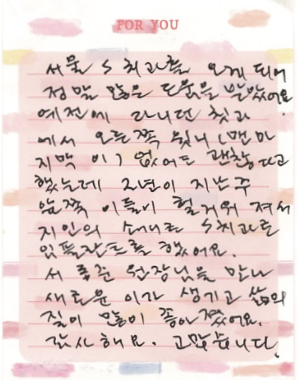 FOR YOU
서울 S 치과를 오게 되어
정말 많은 도움을 받았어요.
예전에 다니던 치과
에서 오른쪽 위니 (맨 마
지막 이) 없어도 괜찮다고
했는데 2년이 지난 후
앞쪽 이들이 헐거워 져서
지인의 소개로 S치과로
임플란트를 했어요.
서 훌륭한 원장님을 만나
새로운 이가 생기고 삶의
질이 많이 좋아졌어요.
감사해요. 고맙습니다.